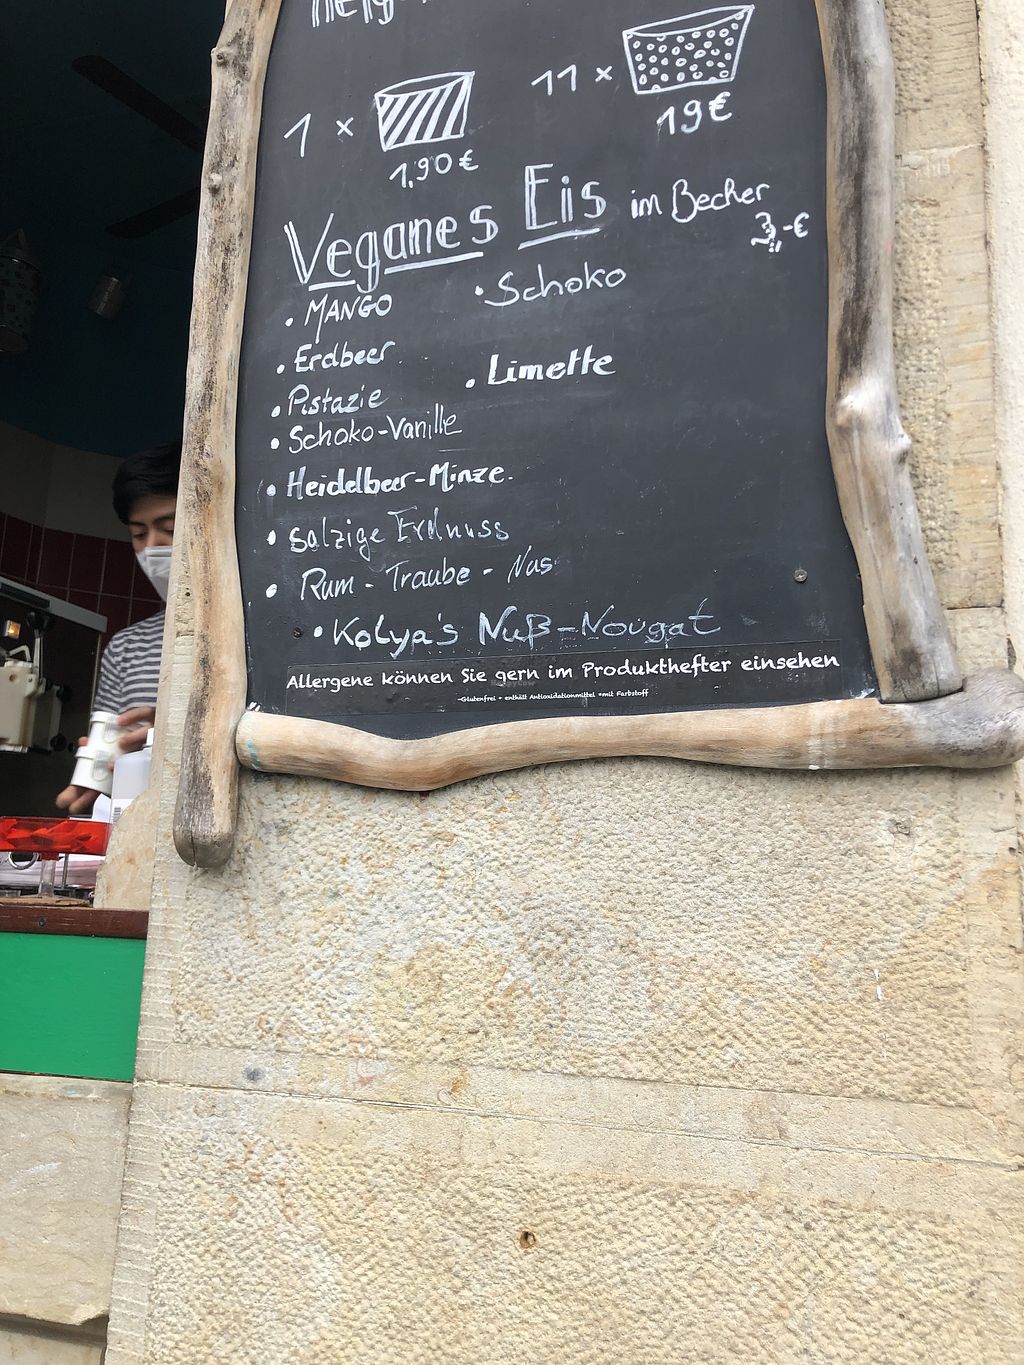 1 x
1,90 €
11 x
19 €
Veganes Eis im Becher
3,-€
• MANGO
• Schoko
• Erdbeer
• Limette
• Pistazie
• Schoko-Vanille
• Heidelbeer-Minze.
• salzige Erdnuss
• Rum - Traube - Nus
• Kolya's Nuß-Nougat
Allergene können Sie gern im Produkthefter einsehen
-Glutenfrei - enthält Antioxidationmittel -mit Farbstoff